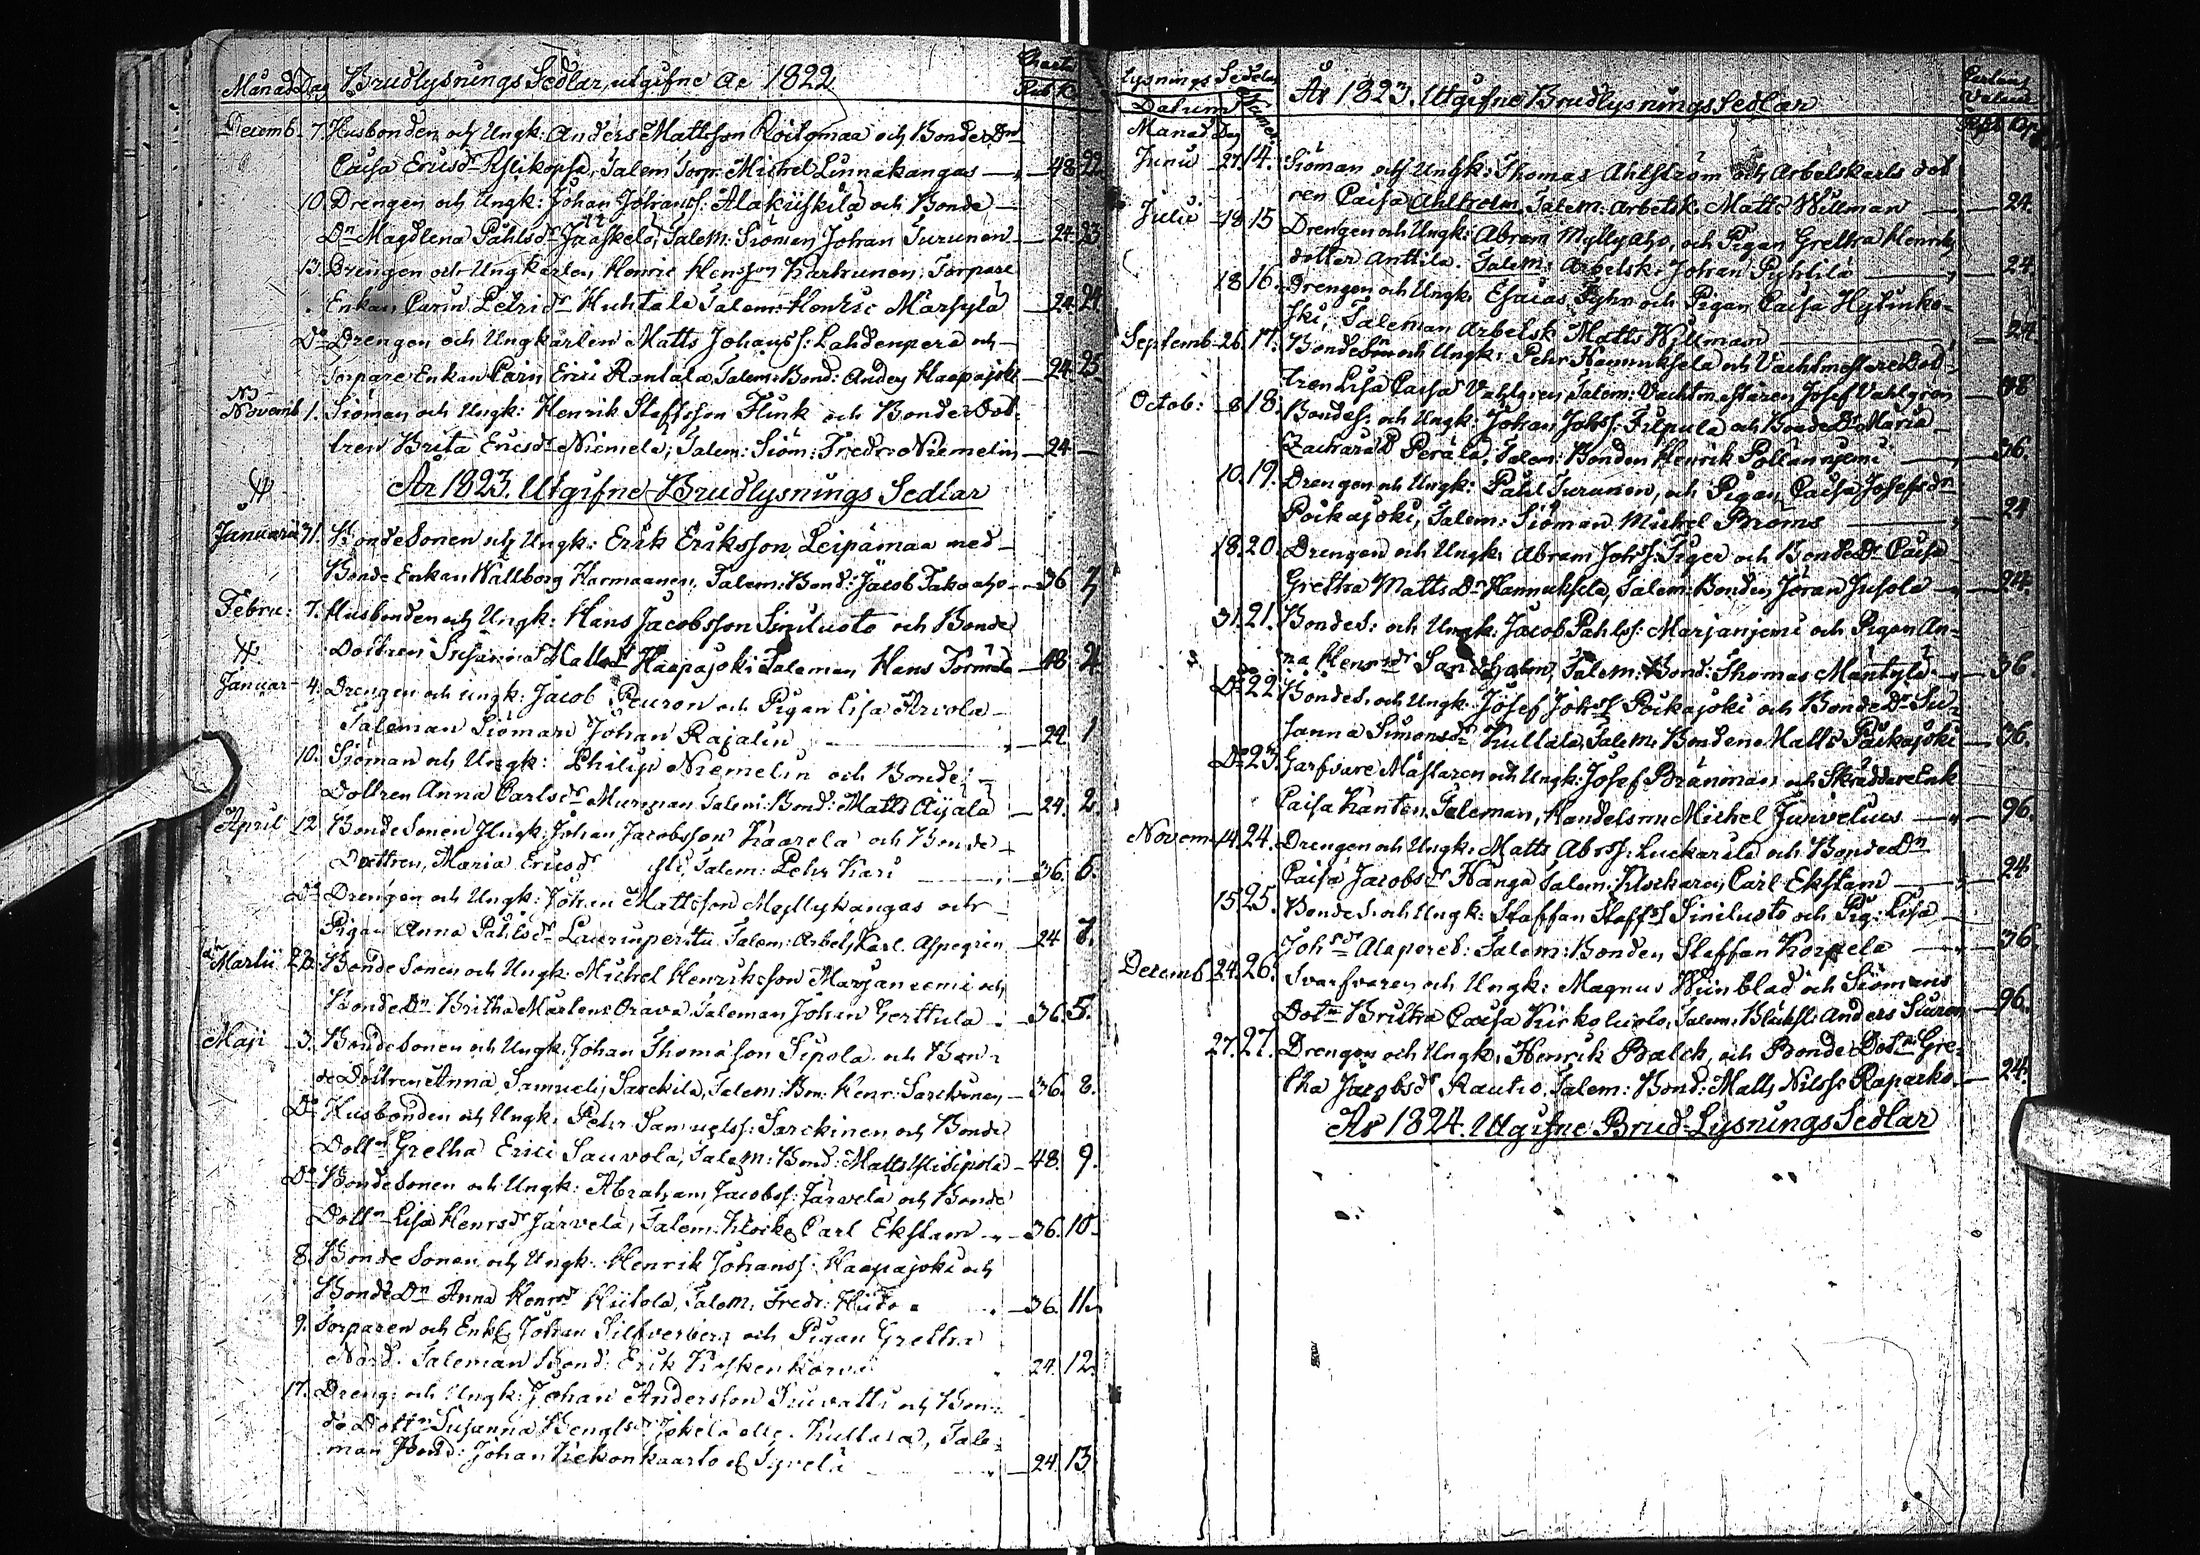 Månad Dag BrudlysningsSedlar, utgifne År 1822 Charta Rub. K.
Decemb. 7. Husbonden och Ungk: Anders Mattsson Roiko maa och Bonde Dn
Caisa Ericsdr Salem Torp: Michel Linnakangas 48 22.
10. Drengen och Ungk: Johan Johanss: Alakijskilä och Bonde
Dn Magdlena Påhlsdr Jääskelä, Salem: Siöman Johan Turunen 24. 23
13. Drengen och Ungkarlen Henric Hensson Karhunen, Torpare
Enkan Carin Petrisdr Huhtala Talem: Henric Marsylä 24. 24.
Do Drengen och Ungkarlen Matts Johanss: Lahdenperä och
Torpare Enkan Carin Erici Rantala, Talem: Bond: Anders Haapajoki 24. 25.
Novemb 1. Siöman och Ungk: Henrik Staffsson Flink och Bonde Dot
tren Brita Ericsdr Niemelä, Talem: Siöm: Fredric Niemelin 24
År 1823. Utgifne BrudlysningsSedlar
Januarii 31. BondeSonen och Ungk: Erik Eriksson Leipämaa med
Bonde Enkan Wallborg Harmaanen, Talem: Bond: Jacob Takoaho 36 3
Febru: 7. Husbonden och Ungk: Hans Jacobsson Siniluoto och Bonde
Dottren Susanna Mattsdr Haapajoki Taleman Hans Törmälä 48 4.
Januar 4. Drengen och Ungk: Jacob Peuron och Pigan Lisa Arvola
Taleman Siöman Johan Rajalin 24. 1
10. Siöman och Ungk: Philip Niemelin och Bonde
Dottren Anna Carlsdr Murman Talem: Bond: Matts Äijälä 24. 2.
April 12 BondeSonen Ungk: Johan Jacobsson Kaarela och Bonde
Dottren, Maria Ericsdr Talem: Pehr Kari 36. 6.
Do Drengen och Ungk: Johan Mattsson Myllykangas och
Pigan Anna Påhlsdr Laurinperttu Talem: Arbets Karl Aspegrén 24 7.
Martii 22. Bonde Sonen och Ungk: Michel Henriksson Marjaniemi och
Bonde Dn Britha Mårtens Orava Taleman Johan Gerttula 36 5.
Maji 3. BondeSonen och Ungk: Johan Thomasson Sipola och Bon-
de Dottren Anna Samuelis Sarckilä, Talem: Bon: Henr: Sarckinen 36. 8.
Do Husbonden och Ungk: Pehr Samuelss: Sarckinen och Bonde
Dottn Gretha Erici Sauvola, Talem: Bond: Matts Sipola 48. 9.
Do BondeSonen och Ungk: Abraham Jacobss: Järvelä och Bonde
Dottn Lisa Henrsdr Järvelä, Talem: Klock: Carl Ekstam 36. 10.
8. Bonde Sonen och Ungk: Henrik Johanss: Haapajoki och
Bonde Dn Anna Henrsdr Hiitola, Talem: Fredr: Hiido 36. 11.
9. Torparen och Enkl: Johan Silfverberg och Pigan Gretha
Nord. Taleman Bond: Erik Koskenkorva 24. 12.
17. Dreng: och Ungk: Johan Andersson Siuvatti och Bon-
de Dottn Susanna Bengtsdr Jokela elle. Kullasa, Tale-
man Bond: Johan Kekonkaarto el. Typelä 24. 13
Lysnings Sedelns
Datum Numer
Månad Dag
År 1823. Utgifne BrudlysningsSedlar Cartans Valeur
Junii 27. 14. Siöman och Ungk: Thomas Ahlström och Arbetskarls dot
ren Caisa Ahlholm Talem: Arbetsk. Matts Willman 24.
Julii 18 15 Drengen och Ungk: Abram Myllyaho, och Pigan Gretha Henrics
dotter Anttila. Talem: Arbetsk: Johan Pyhtilä 24.
18 16. Drengen och Ungk: Esaias Fyhr och Pigan Caisa Hylinko-
ski, Taleman Arbetsk Matts Willman 24.
Septemb. 26. 17. BondeSon och Ungk: Pehr Hannuksela och Vachtmestare Dot-
tren Lisa Caisa Vahlgren, Talem: Vachtmestaren Josef Vahlgren 48
Octob: 8 18. BondeS: och Ungk: Johan Johss: Filpula och Bonde Dr Maria
Zachariæ Perälä, Talem: Bonden Henrik Pöllänniemi 36.
10. 19. Drengen och Ungk: Påhl Turunen, och Pigan Caisa Josefsdr
Poikajoki, Talem: Siöman Michel Broms 24
18. 20. Drengen och Ungk: Abram Johss: Tiger och Bonde Dr Caisa
Gretha Matts Dr Hannuksela, Talem: Bonden Jöran Jusola 24.
31. 21. BondeS: och Ungk: Jacob Påhlss: Marjanjemi och Pigan An-
na Henrsdr Sandholm, Talem: Bond: Thomas Mäntylä 36.
Do 22 BondeS. och Ungk: Josef Johss Poikajoki och Bonde Dr Su-
sanna Simonsdr Kullala, Talem: Bonden Matts Poikajoki 36.
Do 23. Garfvare Mästaren och Ungk: Josef Bränman och Skräddare Enk
Caisa Kantén, Taleman, Handelsm: Michel Jurvelius 96.
Novem. 14. 24. Drengen och Ungk: Matts Abrss: Luckarila och Bonde Dn
Caisa Jacobsdr Kanga Talem: Klockaren Carl Ekstam 24.
15. 25. BondeS. och Ungk: Staffan Staffss Siniluoto och Pig: Lisa
Johsdr Alaperet: Talem: Bonden Staffan Korpela 36.
Decemb. 24. 26. Svarfvaren och Ungk: Magnus Wiinblad och Siömans
Dotn Britha Caisa Kirkoluoto, Talem: Anders Siuron 96.
27. 27. Drengen och Ungk: Henrik Balck, och Bonde Dotn Gre-
tha Jacobsdr Rautio, Talem: Bond: Matts Nilsss Raparko 24.
År 1824. Utgifne Brud-LysningsSedlar